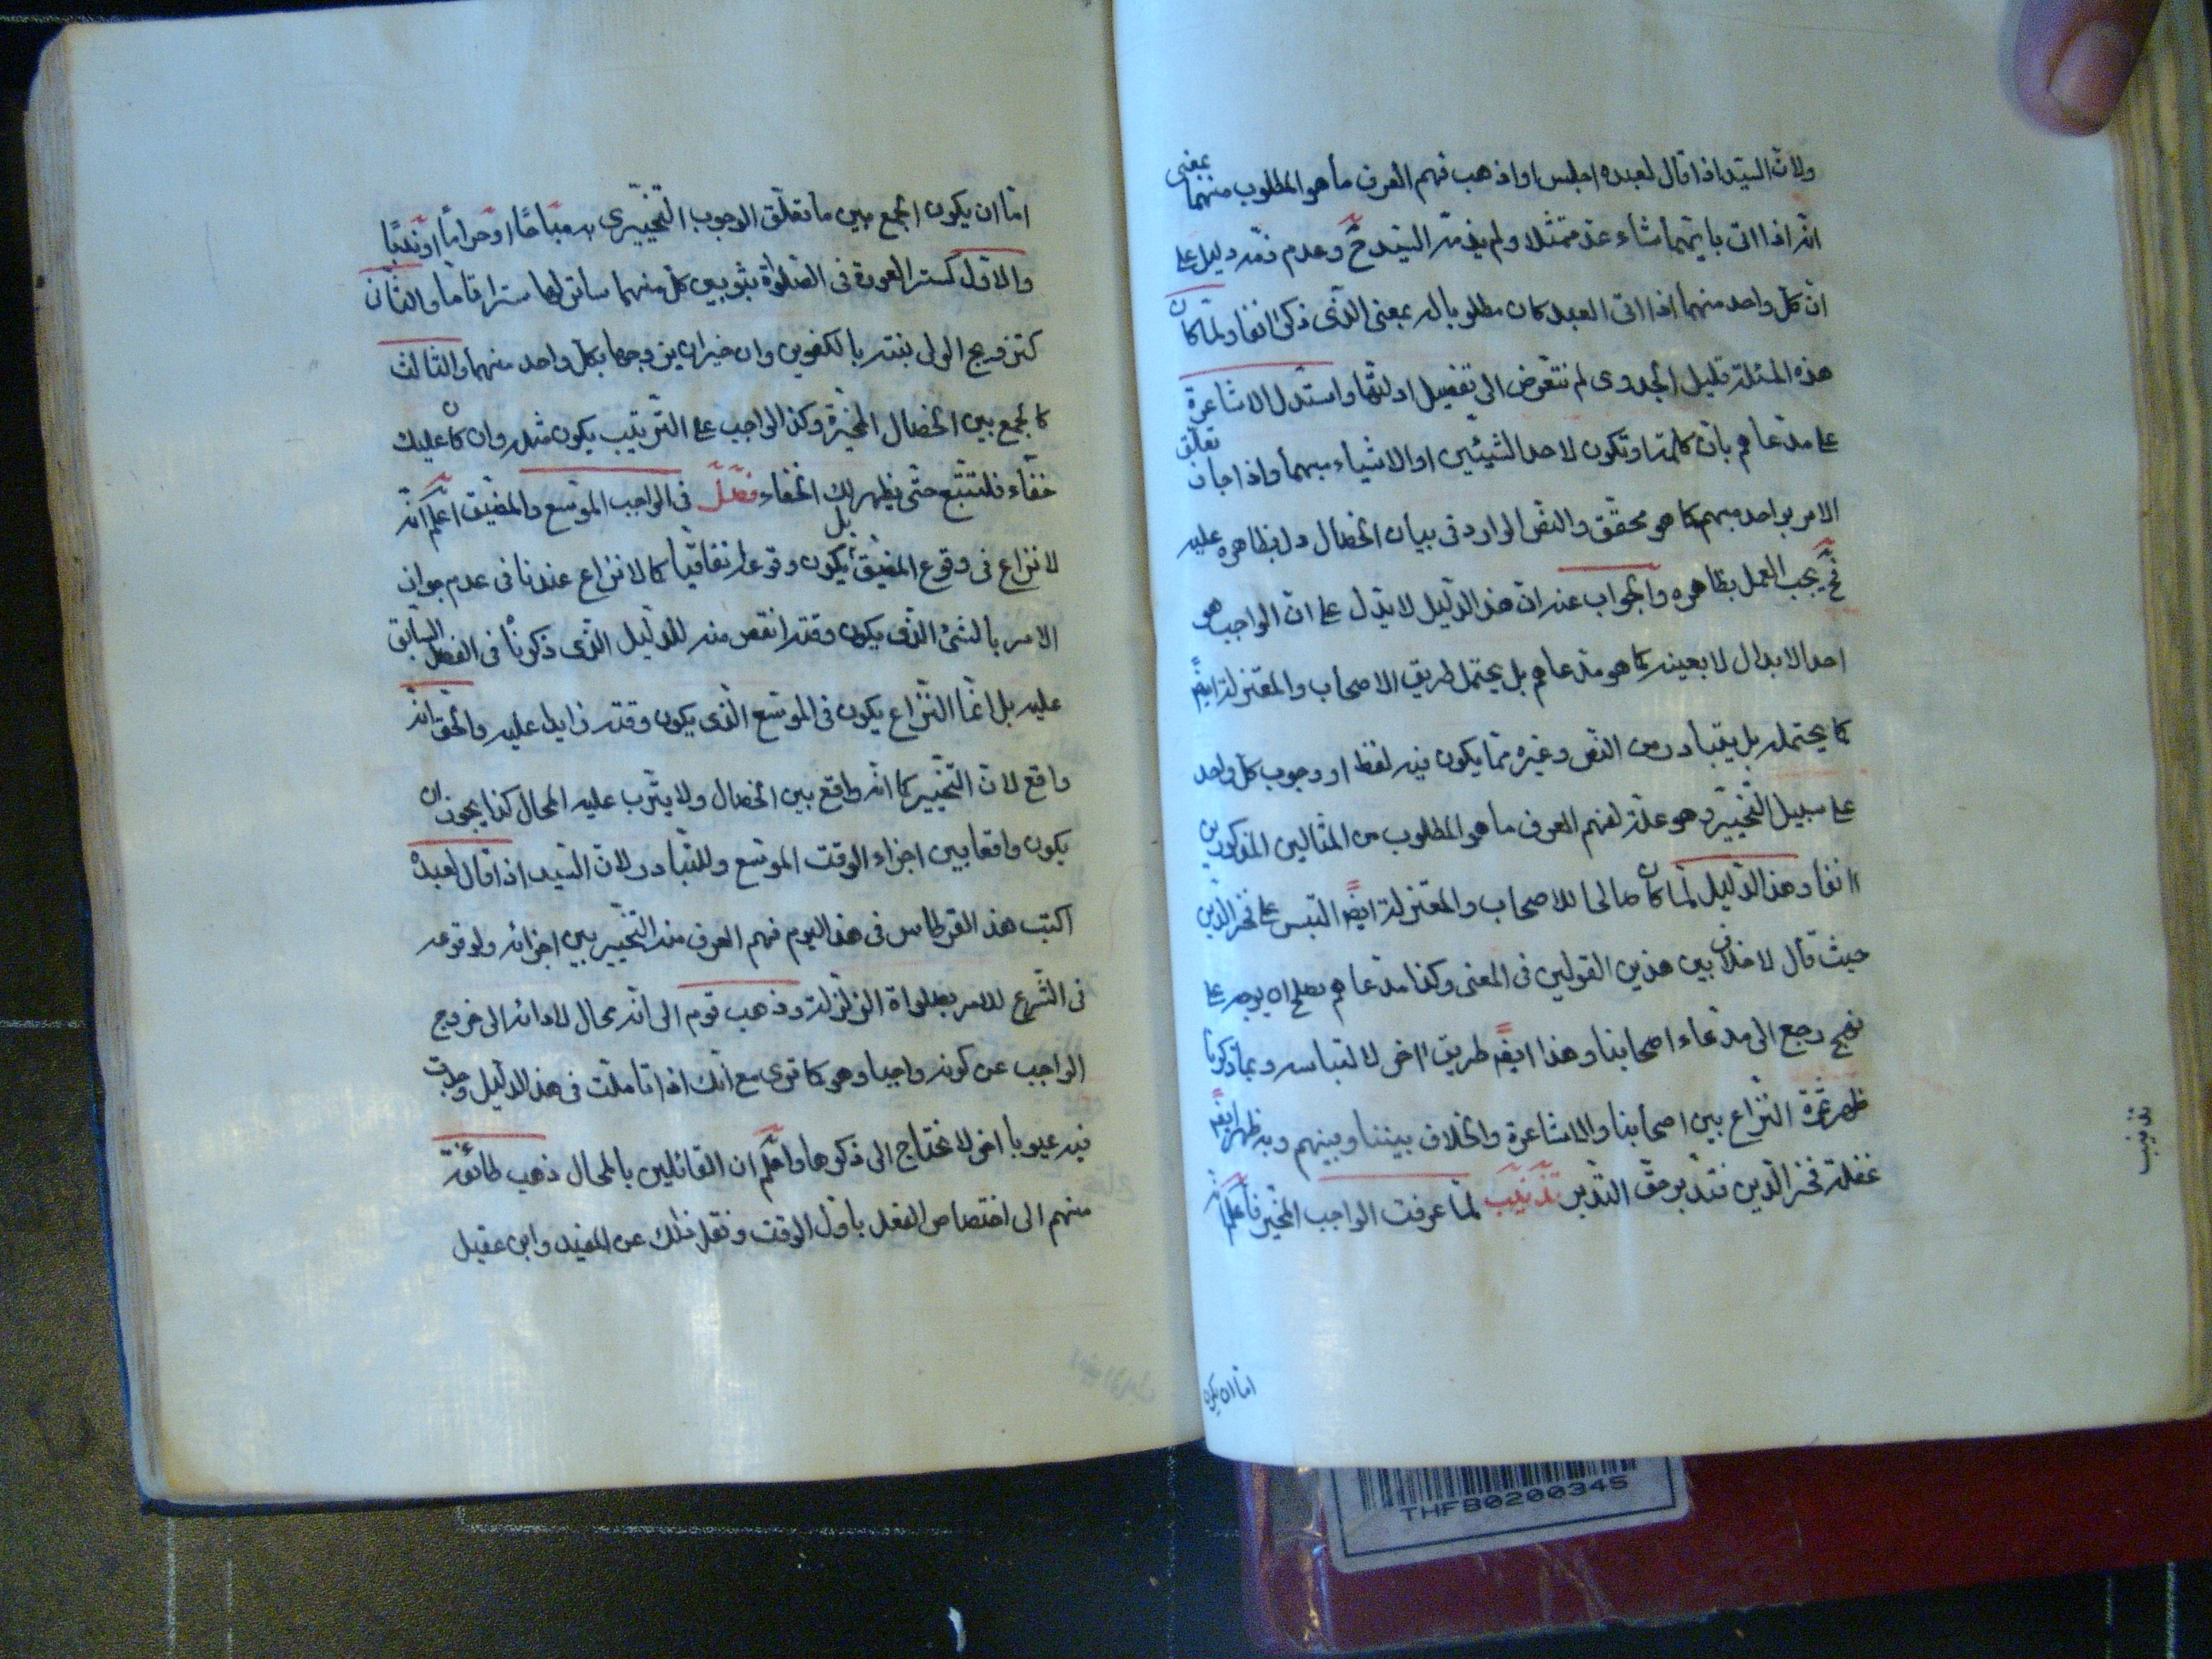 ولان السيد اذا قال لعبده اجلس او اذهب فهم العرف ما هو المطلوب منهما بمعنى
انه اذا اتى بايهما شاء عد ممتثلا ولم يذمه السيد ح وعدم ذمه دليل على
ان كل واحد منهما اذا اتى العبد كان مطلوبا له بمعنى الذى ذكر انفا ولما كان
هذه المسئلة قليل الجدوى لم نتعرض الى تفصيل ادلتها واستدل الاشاعرة
على مدعاهم بان كلمة او تكون لاحد الشيئين او الاشياء مبهما واذا جاز تعلق
الامر بواحد مبهم كما هو محقق والنص الوارد فى بيان الخصال دل بظاهره عليه
فح يجب العمل بظاهره والجواب عنه ان هذا الدليل لا يدل على ان الواجب هو
احد الابدال لا بعينه كما هو مدعاهم بل يحتمل طريق الاصحاب والمعتزلة ايضً
كما يحتمله بل يتبادر من النص وغيره مما يكون فيه لفظ او وجوب كل واحد
على سبيل التخيير وهو علة لفهم العرف ما هو المطلوب من المثالين المذكورين
انفا وهذا الدليل لما كان صالحا للاصحاب والمعتزلة ايضً التبس على فخر الدين
حيث قال لا خلاف بين هذين القولين فى المعنى وكذا مدعاهم يصلح ان يوجه على
نهج رجع الى مدعاء اصحابنا وهذا ايضً طريق اخر لالتباسه وبما ذكرنا
ظهر ثمرة النزاع بين اصحابنا والاشاعرة والخلاف بيننا وبينهم وبه ظهر ايضً
غفلة فخر الدين فتدبر حق التدبر تذنيب لما عرفت الواجب المخير فاعلم انه
تذنيب
اما ان يكون
اما ان يكون الجمع بين ما تعلق الوجوب التخييرى به مباحًا او حرامًا او ندبًا
والاول كستر العورة فى الصلوة بثوبين كل منهما ساتر لها سترا تاما والثانى
كتزويج الولى بنته بالكفوين وان خير ان يزوجها بكل واحد منهما والثالث
كالجمع بين الخصال المخيرة وكذا الواجب على الترتيب يكون مثله وان كان عليك
خفاء فلتتبع حتى يظهر لك الخفاء فصل فى الواجب الموسع والمضيق اعلم انه
لا نزاع فى وقوع المضيق بل يكون وقوعه اتفاقيا كما لا نزاع عندنا فى عدم جواز
الامر بالشئ الذى يكون وقته انقص منه للدليل الذى ذكرنا فى الفصل السابق
عليه بل انما النزاع يكون فى الموسع الذى يكون وقته زايدا عليه والحق انه
واقع لان التخيير كما انه واقع بين الخصال ولا يترب عليه المحال كذا يجوز ان
يكون واقعا بين اجزاء الوقت الموسع وللتبادر ولان السيد اذا قال لعبده
اكتب هذا القرطاس فى هذا اليوم فهم العرف منه التخيير بين اجزائه ولوقوعه
فى الشرع للامر بصلواة الزلزلة وذهب قوم الى انه محال لادائه الى خروج
الواجب عن كونه واجبا وهو كما ترى مع انك اذا تاملت فى هذا الدليل وجدت
فيه عيوبا اخر لا تحتاج الى ذكرها واعلم ان القائلين بالمحال ذهب طائفة
منهم الى اختصاص الفعل باول الوقت ونقل ذلك عن المفيد وابن عقيل
THFB0200345